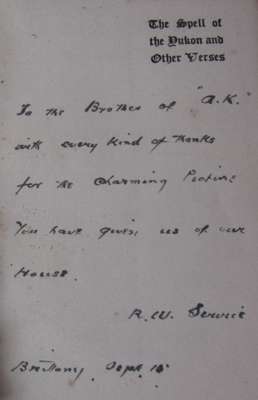 The Spell of
the Yukon and
Other Verses
To the Brother of "A.K."
with every kind of thanks
for the charming Picture
You have given us of our
House.
R. W. Service
Brittany Sept.